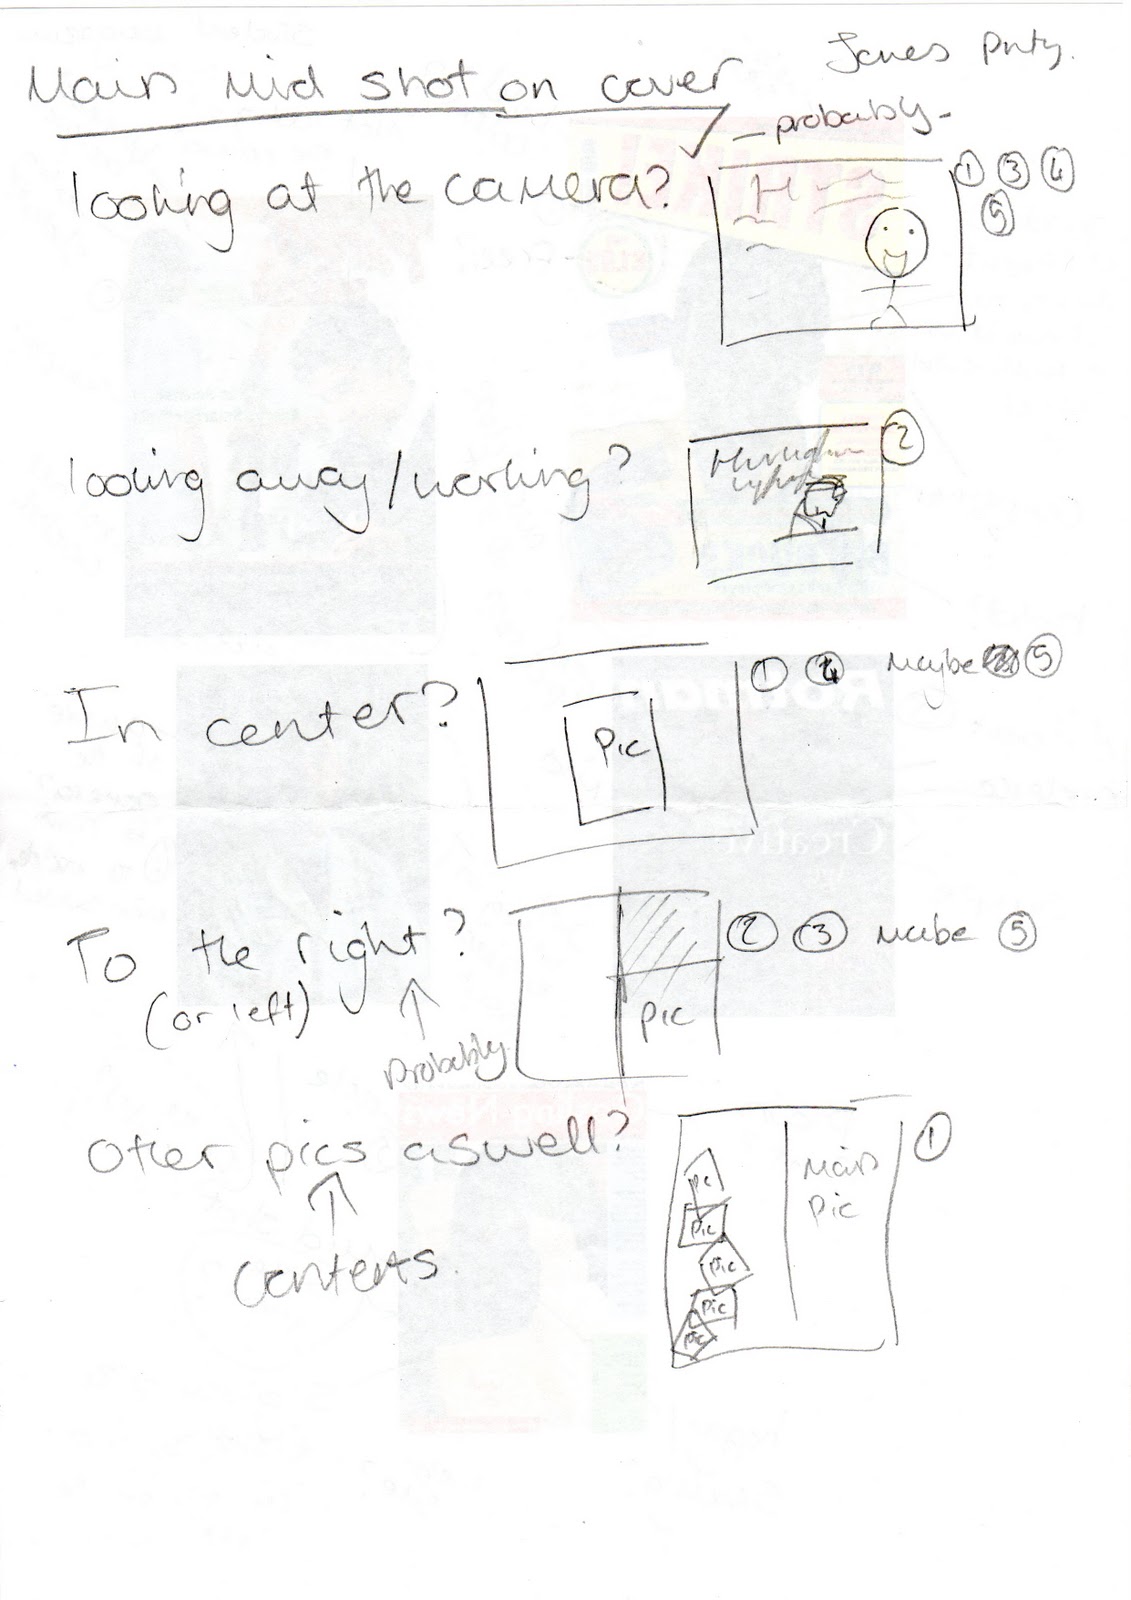 Main Mid shot on cover
James
- probably -
looking at the camera?
① ③ ④
⑤
looking away/working?
②
In center?
Pic
① ④ Maybe ⑤
To the right?
(or left)
Probably
Pic
② ③ Maibe ⑤
Other pics aswell?
Contents
pic
Pic
Pic
Pic
Pic
Main
Pic
①